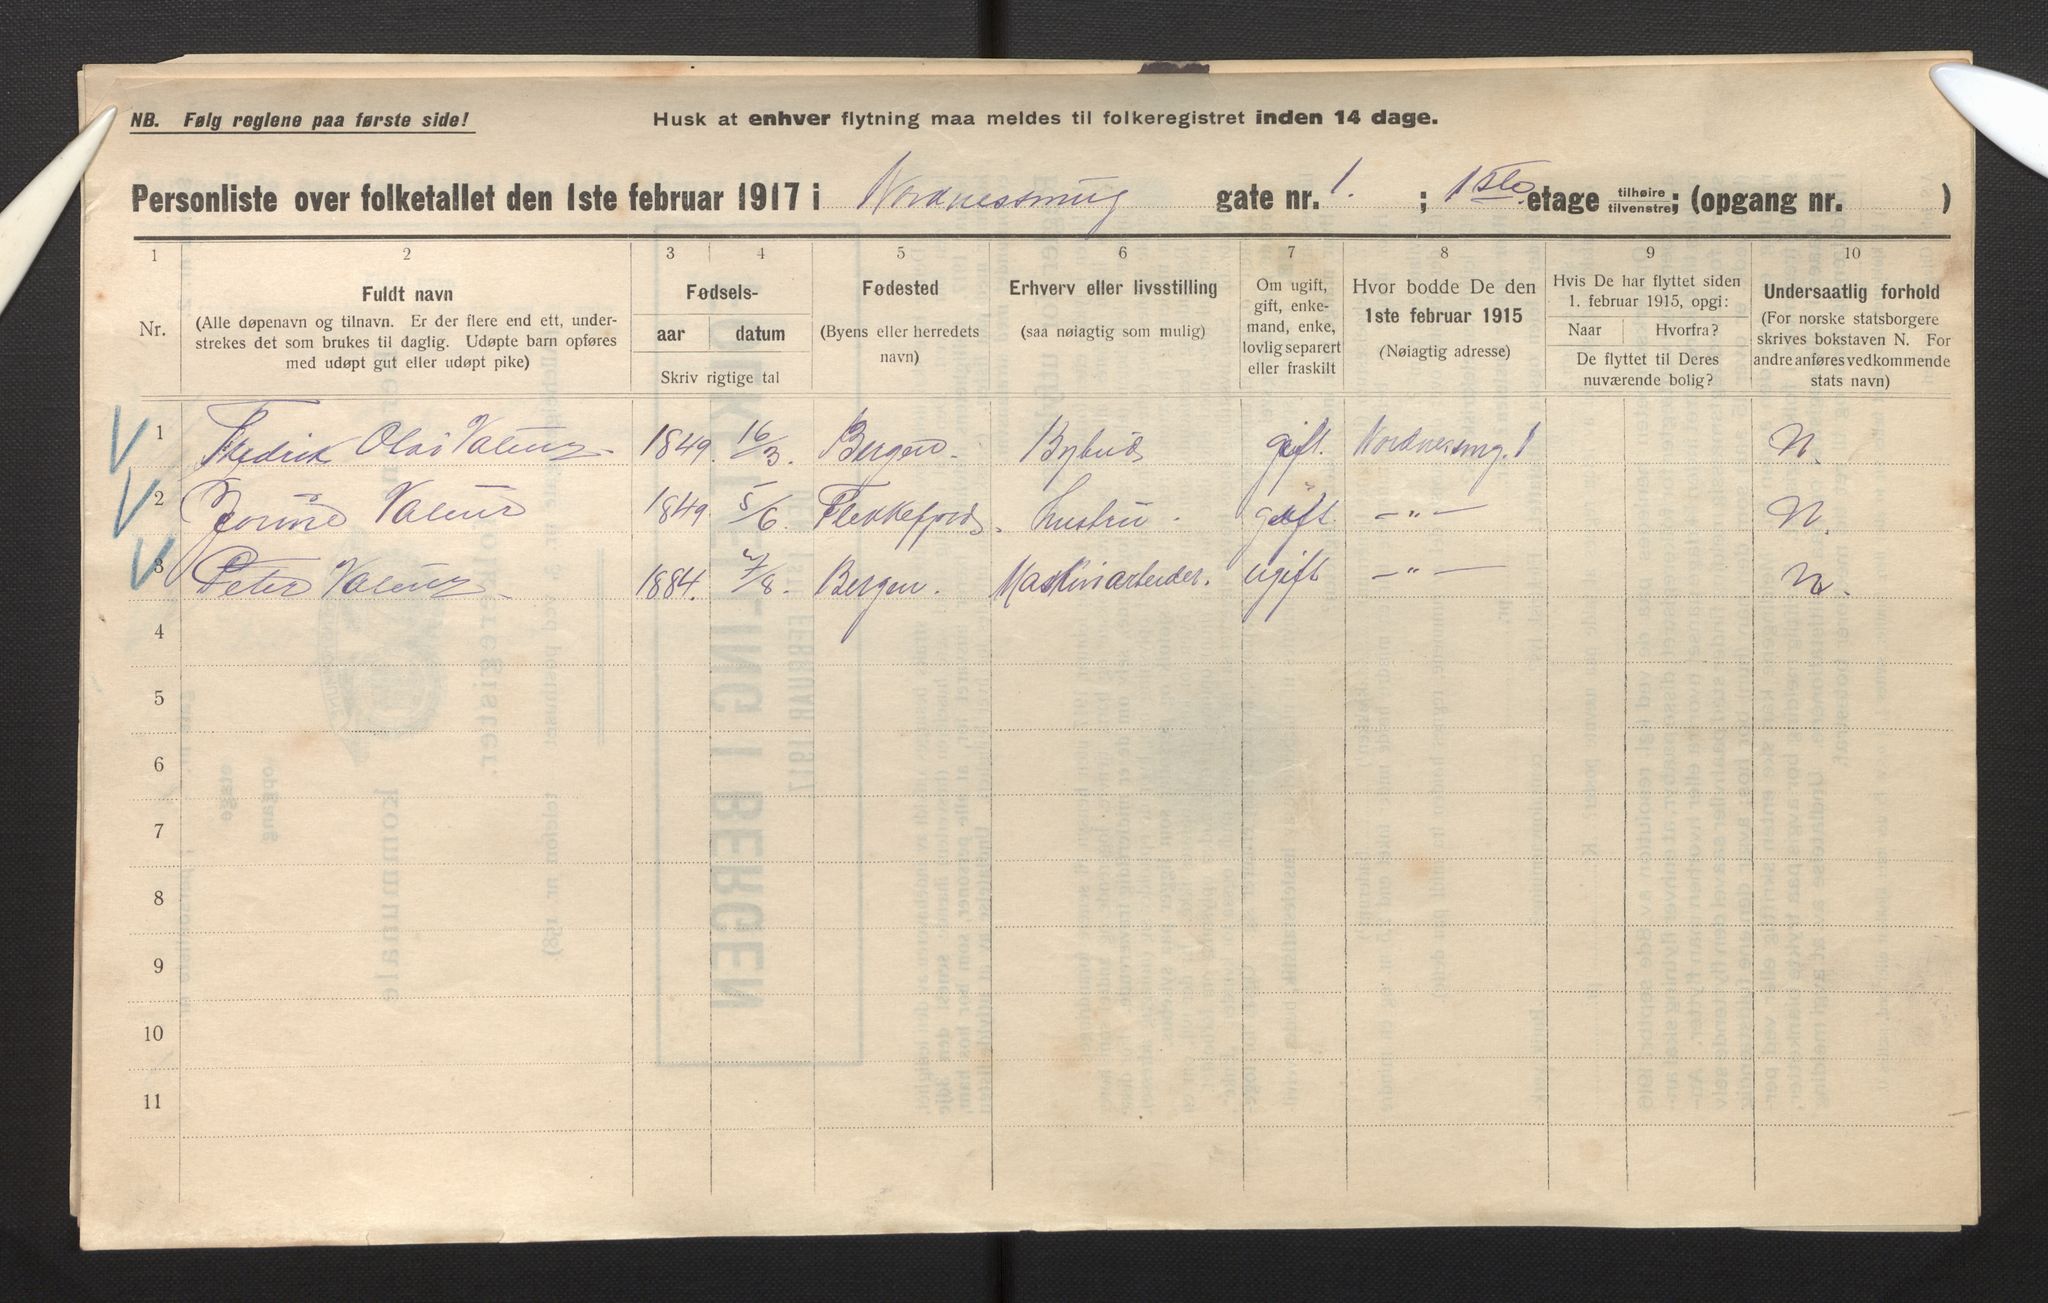 NB. Følg reglene paa første side!
Husk at enhver flytning maa meldes til folkeregistret inden 14 dage.
Personliste over folketallet den 1ste februar 1917 i Nordnessmug gate nr. 1. ; 1ste etage tilhøire tilvenstre; (opgang nr. )
1 2 3 4 5 6 7 8 9 10
Nr.
Fuldt navn
(Alle døpenavn og tilnavn. Er der flere end ett, under-
strekes det som brukes til daglig. Udøpte barn opføres
med udøpt gut eller udøpt pike)
Fødsels-
aar datum
Skriv rigtige tal
Fødested
(Byens eller herredets
navn)
Erhverv eller livsstilling
(saa nøiagtig som mulig)
Om ugift,
gift, enke-
mand, enke,
lovlig separert
eller fraskilt
Hvor bodde De den
1ste februar 1915
(Nøiagtig adresse)
Hvis De har flyttet siden
1. februar 1915, opgi:
Naar Hvorfra?
De flyttet til Deres
nuværende bolig?
Undersaatlig forhold
(For norske statsborgere
skrives bokstaven N. For
andre anføres vedkommende
stats navn)
V 1 Fredrik Olai 1849. 16/3. Bergen. Bybud gift. Nordnessmg. 1 N.
V 2 1849. 5/6. Flekkefjord. hustru. gift — " — N.
V 3 Peter 1884. 7/8. Bergen. Maskinarbeider. ugift — " — N.
4
5
6
7
8
9
10
11